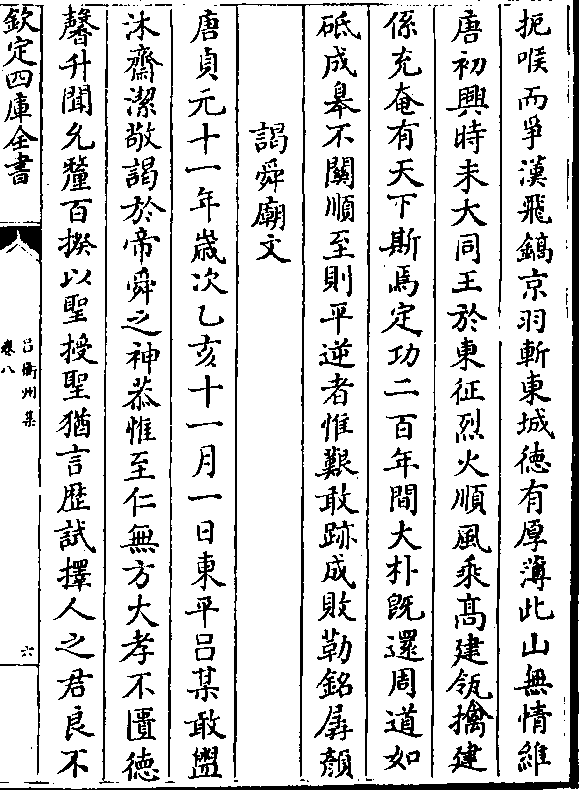 扼喉而爭漢飛鎬京羽斬東城徳有厚薄此山無情維
唐初興時未大同王於東征烈火順風乘髙建瓴擒建
係充奄有天下斯焉定功二百年間大朴既還周道如
砥成皋不關順至則平逆者惟艱敢跡成敗勒銘孱顔
謁舜廟文
唐貞元十一年嵗次乙亥十一月一日東平吕某敢盥
沐齋潔敬謁於帝舜之神恭惟至仁無方大孝不匱徳
馨升聞允釐百揆以聖授聖猶言歴試擇人之君良不
欽定四庫全書
吕衡州集
卷八
六